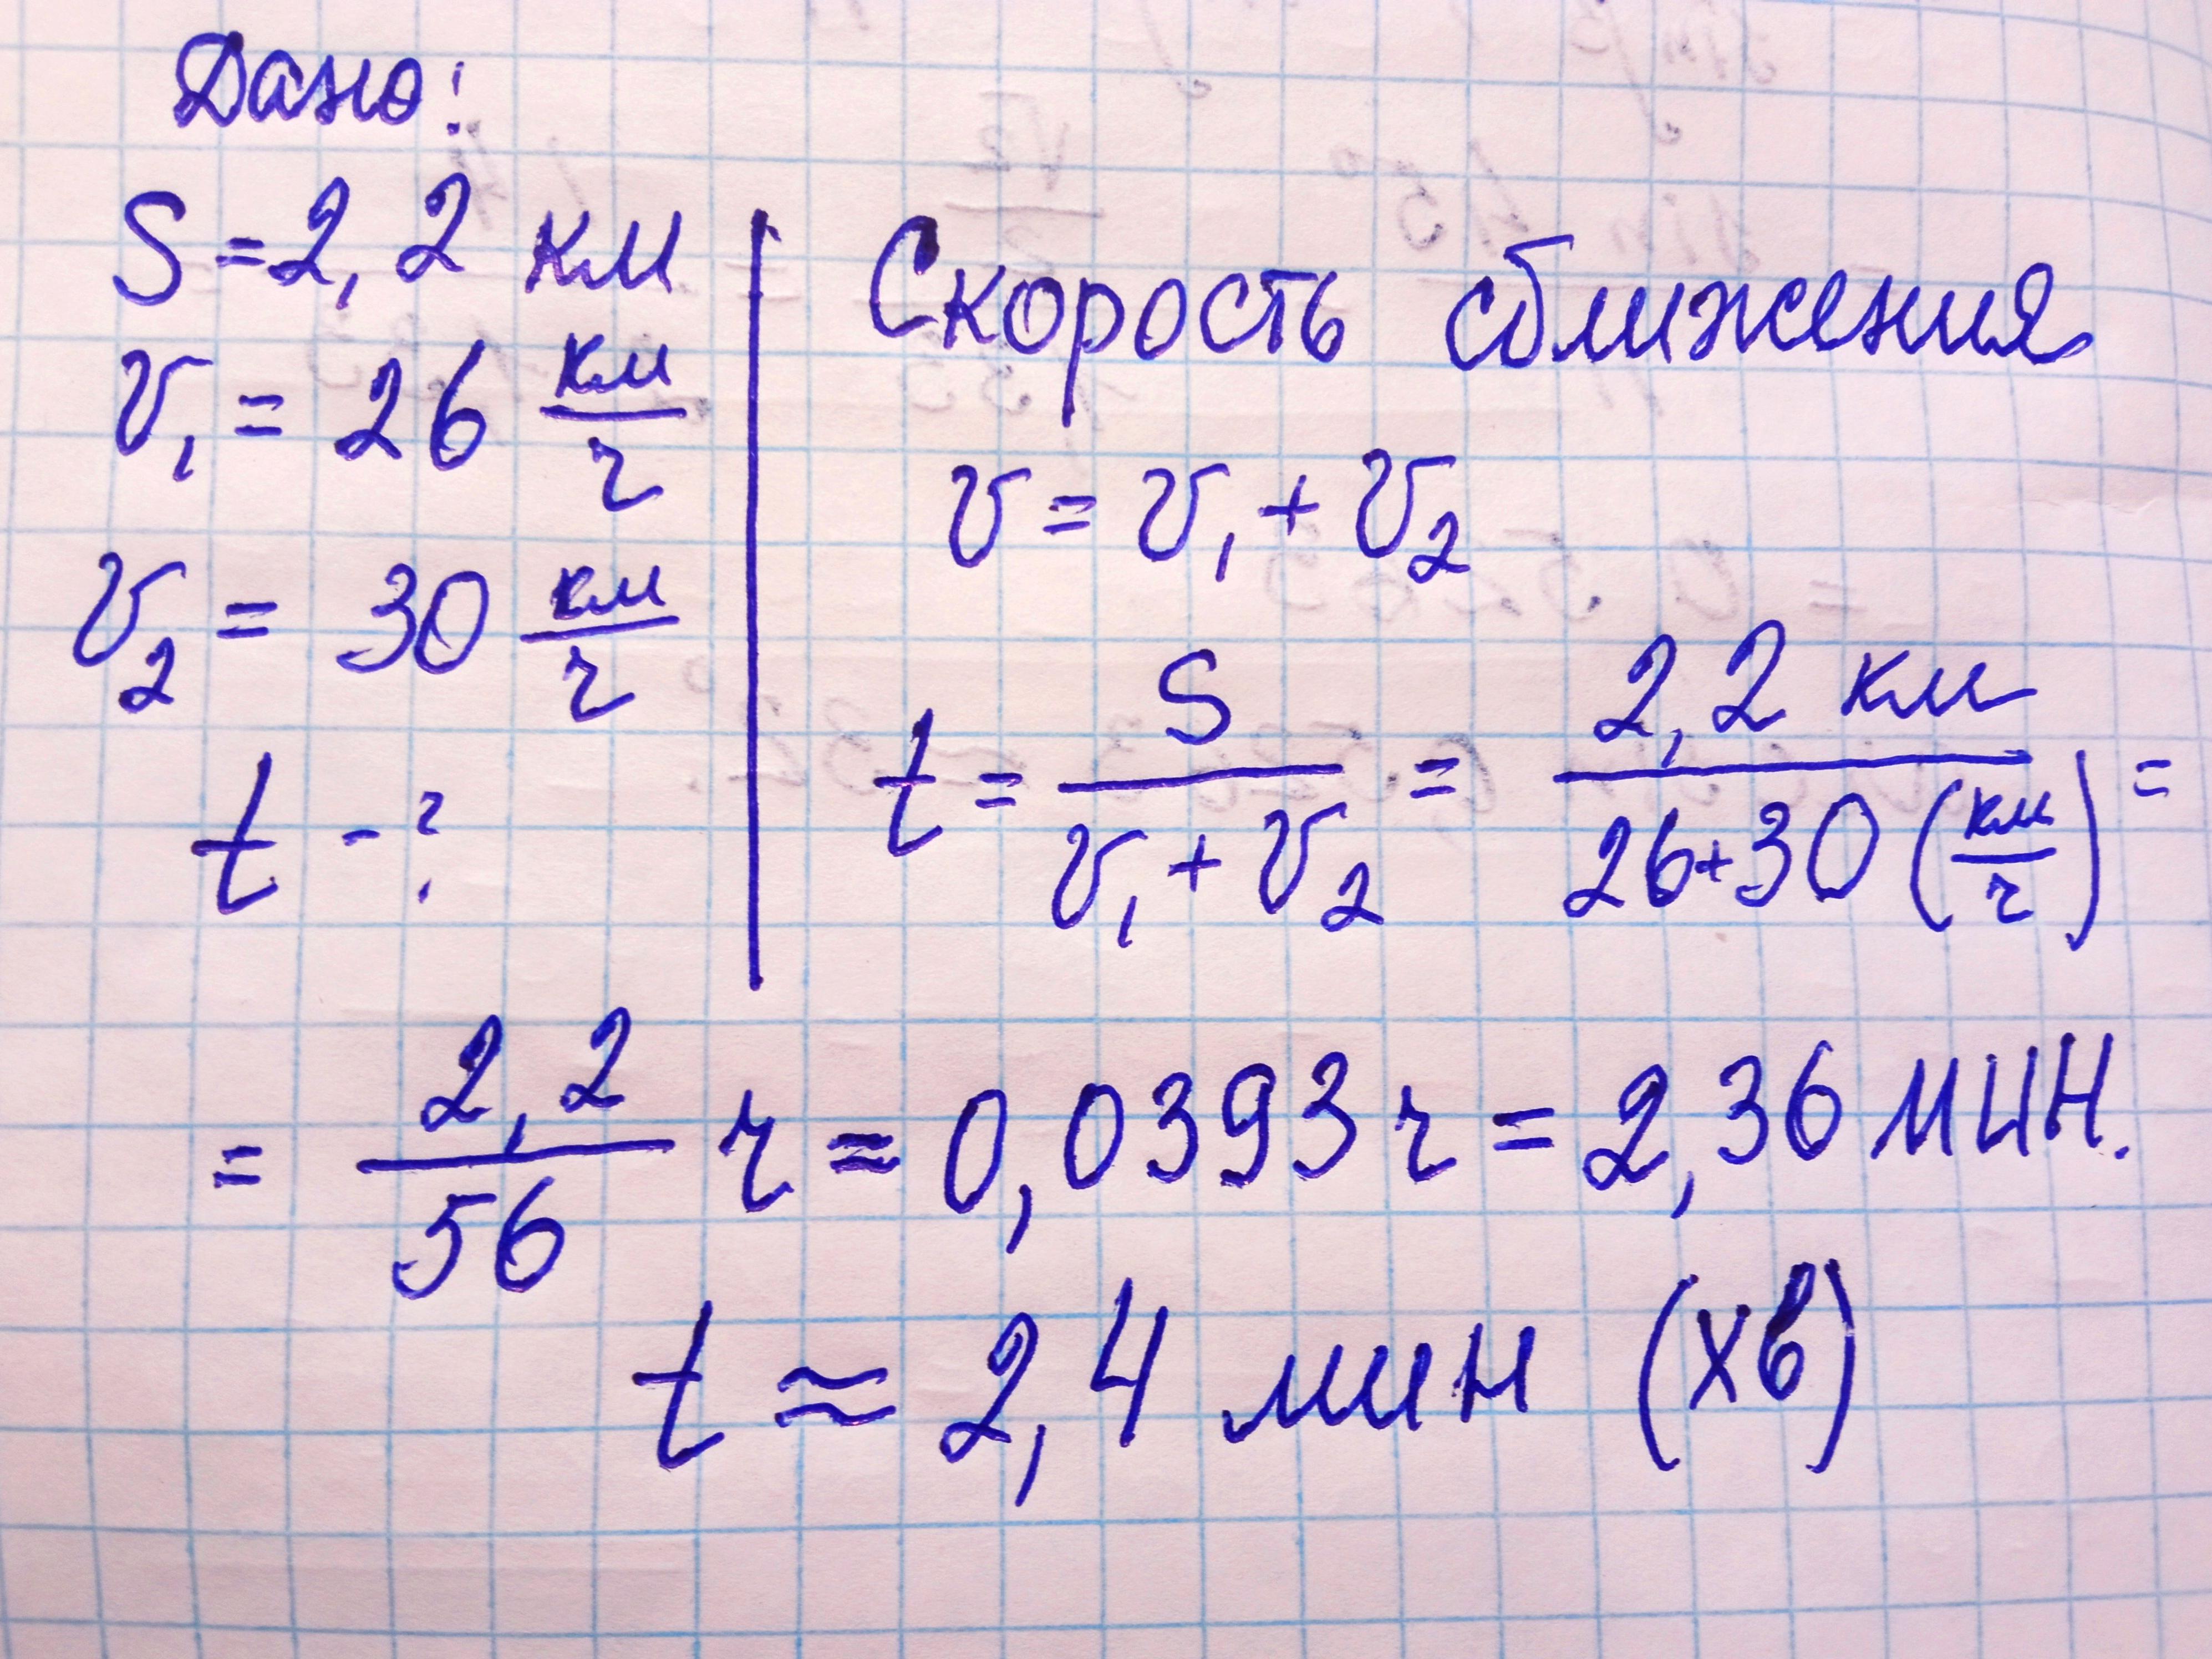 Дано:
S = 2,2 км
v₁ = 26 км/г
v₂ = 30 км/г
t - ?
Скорость сближения
v = v₁ + v₂
t = S/(v₁ + v₂) = 2,2 км/(26+30 (км/г)) =
= 2,2/56 г ≈ 0,0393 г = 2,36 мин.
t ≈ 2,4 мин (хв)